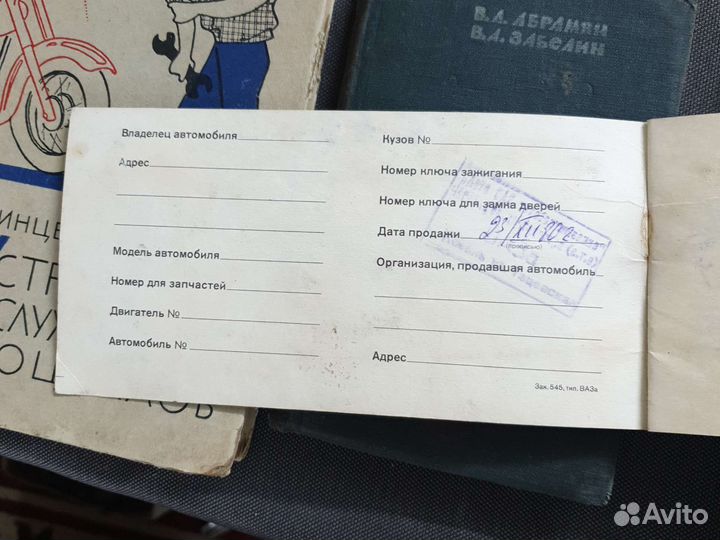 В.А. АБРАМЯН
В.А. ЗАБЕЛИН
Владелец автомобиля
Адрес
Модель автомобиля
Номер для запчастей
Двигатель №
Автомобиль №
Кузов №
Номер ключа зажигания
Номер ключа для замка дверей
Дата продажи 23/XII 80
(прописью)
Организация, продавшая автомобиль
Адрес
Зак. 545, тип. ВАЗа
Avito